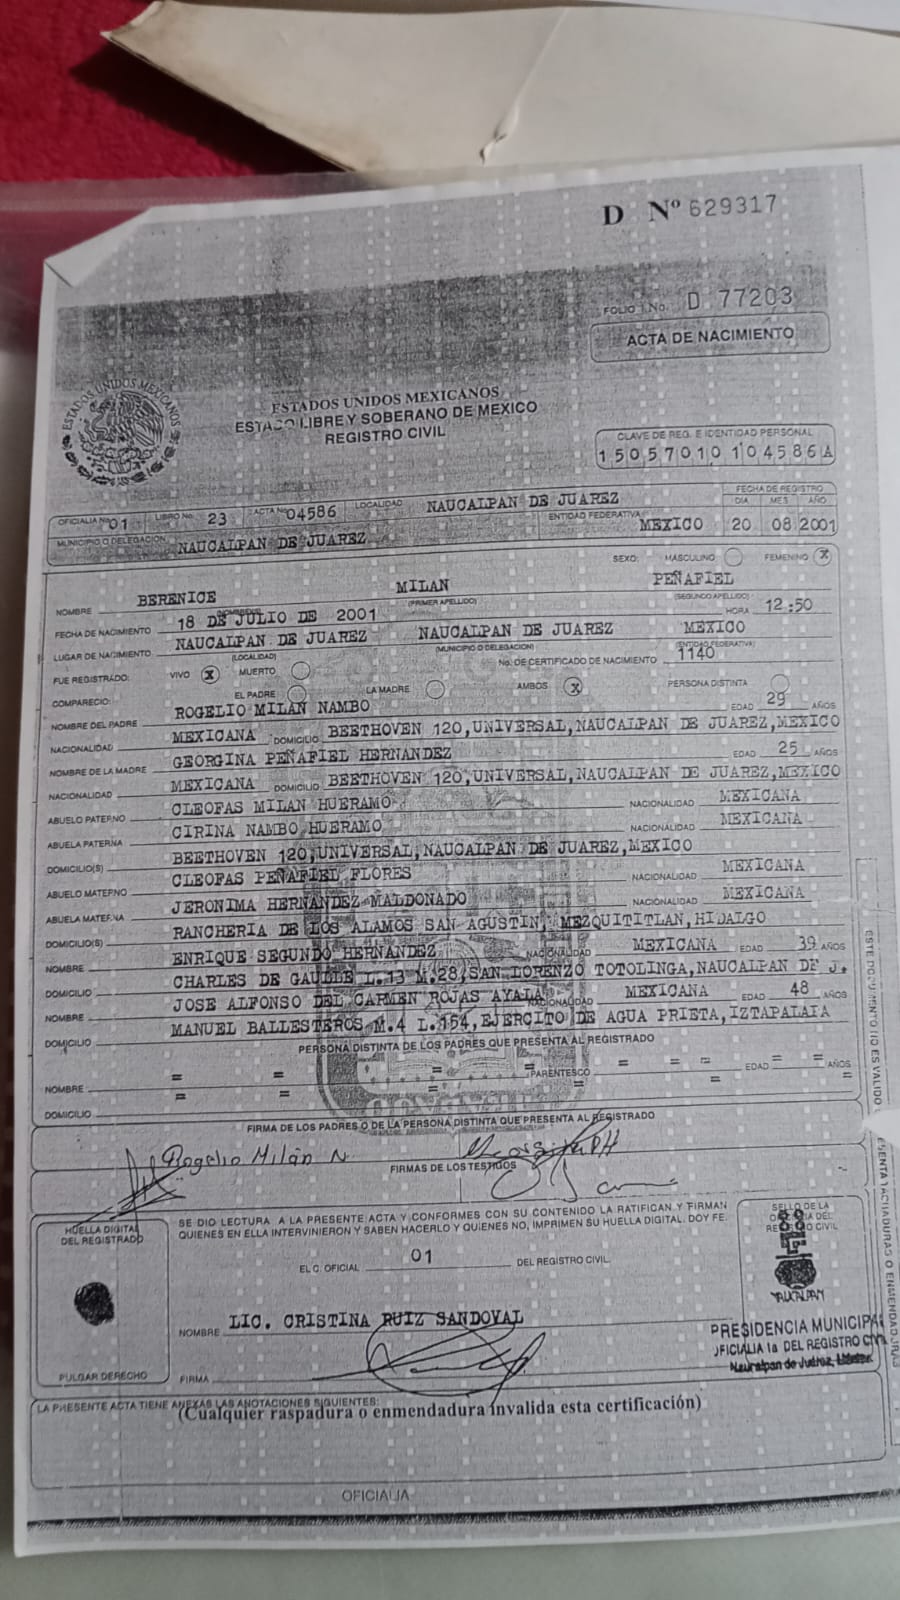 D Nº 629317
FOLIO No. D 77203
ACTA DE NACIMIENTO
ESTADOS UNIDOS MEXICANOS
ESTADOS UNIDOS MEXICANOS
ESTADO LIBRE Y SOBERANO DE MEXICO
REGISTRO CIVIL
CLAVE DE REG. E IDENTIDAD PERSONAL
15057010104586A
OFICIALIA Nº 01 LIBRO No. 23 ACTA Nº 04586 LOCALIDAD NAUCALPAN DE JUAREZ
FECHA DE REGISTRO
DIA MES AÑO
MUNICIPIO O DELEGACION NAUCALPAN DE JUAREZ ENTIDAD FEDERATIVA MEXICO 20 08 2001
SEXO: MASCULINO FEMENINO X
NOMBRE BERENICE MILAN PEÑAFIEL
(PRIMER APELLIDO) (SEGUNDO APELLIDO)
FECHA DE NACIMIENTO 18 DE JULIO DE 2001 HORA 12:50
LUGAR DE NACIMIENTO NAUCALPAN DE JUAREZ NAUCALPAN DE JUAREZ MEXICO
(LOCALIDAD) (MUNICIPIO O DELEGACION) (ENTIDAD FEDERATIVA)
FUE REGISTRADO: VIVO X MUERTO No. DE CERTIFICADO DE NACIMIENTO 1140
COMPARECIO: EL PADRE LA MADRE AMBOS X PERSONA DISTINTA
NOMBRE DEL PADRE ROGELIO MILAN NAMBO EDAD 29 AÑOS
NACIONALIDAD MEXICANA DOMICILIO BEETHOVEN 120,UNIVERSAL,NAUCALPAN DE JUAREZ,MEXICO
NOMBRE DE LA MADRE GEORGINA PEÑAFIEL HERNANDEZ EDAD 25 AÑOS
NACIONALIDAD MEXICANA DOMICILIO BEETHOVEN 120,UNIVERSAL,NAUCALPAN DE JUAREZ,MEXICO
ABUELO PATERNO CLEOFAS MILAN HUERAMO NACIONALIDAD MEXICANA
ABUELA PATERNA CIRINA NAMBO HUERAMO NACIONALIDAD MEXICANA
DOMICILIO(S) BEETHOVEN 120,UNIVERSAL,NAUCALPAN DE JUAREZ,MEXICO
ABUELO MATERNO CLEOFAS PEÑAFIEL FLORES NACIONALIDAD MEXICANA
ABUELA MATERNA JERONIMA HERNANDEZ MALDONADO NACIONALIDAD MEXICANA
DOMICILIO(S) RANCHERIA DE LOS ALAMOS SAN AGUSTIN, MEZQUITITLAN,HIDALGO
NOMBRE ENRIQUE SEGUNDO HERNANDEZ NACIONALIDAD MEXICANA EDAD 39 AÑOS
DOMICILIO CHARLES DE GAULLE L.13 M.28,SAN LORENZO TOTOLINGA,NAUCALPAN DE J.
NOMBRE JOSE ALFONSO DEL CARMEN ROJAS AYALA NACIONALIDAD MEXICANA EDAD 48 AÑOS
DOMICILIO MANUEL BALLESTEROS M.4 L.154,EJERCITO DE AGUA PRIETA,IZTAPALAPA
PERSONA DISTINTA DE LOS PADRES QUE PRESENTA AL REGISTRADO
NOMBRE = = = PARENTESCO = = = EDAD = = AÑOS
DOMICILIO = = = = = =
FIRMA DE LOS PADRES O DE LA PERSONA DISTINTA QUE PRESENTA AL REGISTRADO
Rogelio Milán N.
FIRMAS DE LOS TESTIGOS
HUELLA DIGITAL DEL REGISTRADO
SE DIO LECTURA A LA PRESENTE ACTA Y CONFORMES CON SU CONTENIDO LA RATIFICAN Y FIRMAN
QUIENES EN ELLA INTERVINIERON Y SABEN HACERLO Y QUIENES NO, IMPRIMEN SU HUELLA DIGITAL. DOY FE.
EL C. OFICIAL 01 DEL REGISTRO CIVIL
SELLO DE LA
NOMBRE LIC. CRISTINA RUIZ SANDOVAL
PRESIDENCIA MUNICIPAL
OFICIALIA 1a DEL REGISTRO CIVIL
Naucalpan de Juárez, México
PULGAR DERECHO FIRMA
LA PRESENTE ACTA TIENE ANEXAS LAS ANOTACIONES SIGUIENTES:
(Cualquier raspadura o enmendadura invalida esta certificación)
OFICIALIA
ESTE DOCUMENTO NO ES VALIDO
TACHADURAS O ENMENDADURAS